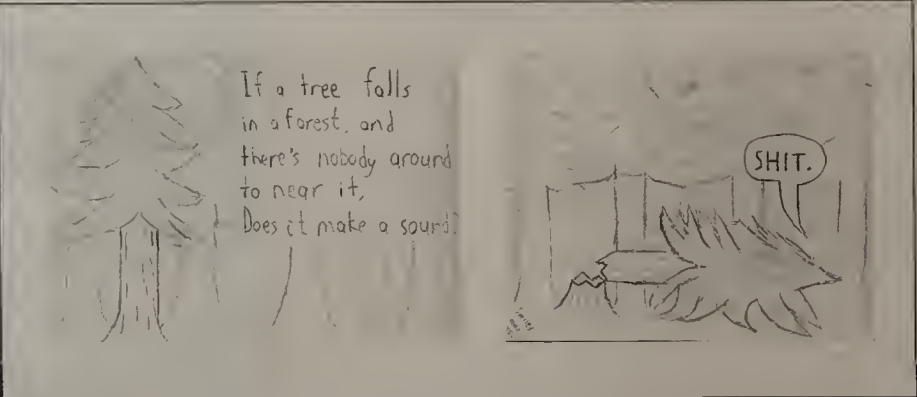 If a tree falls
in a forest, and
there's nobody around
to hear it,
Does it make a sound?
SHIT.